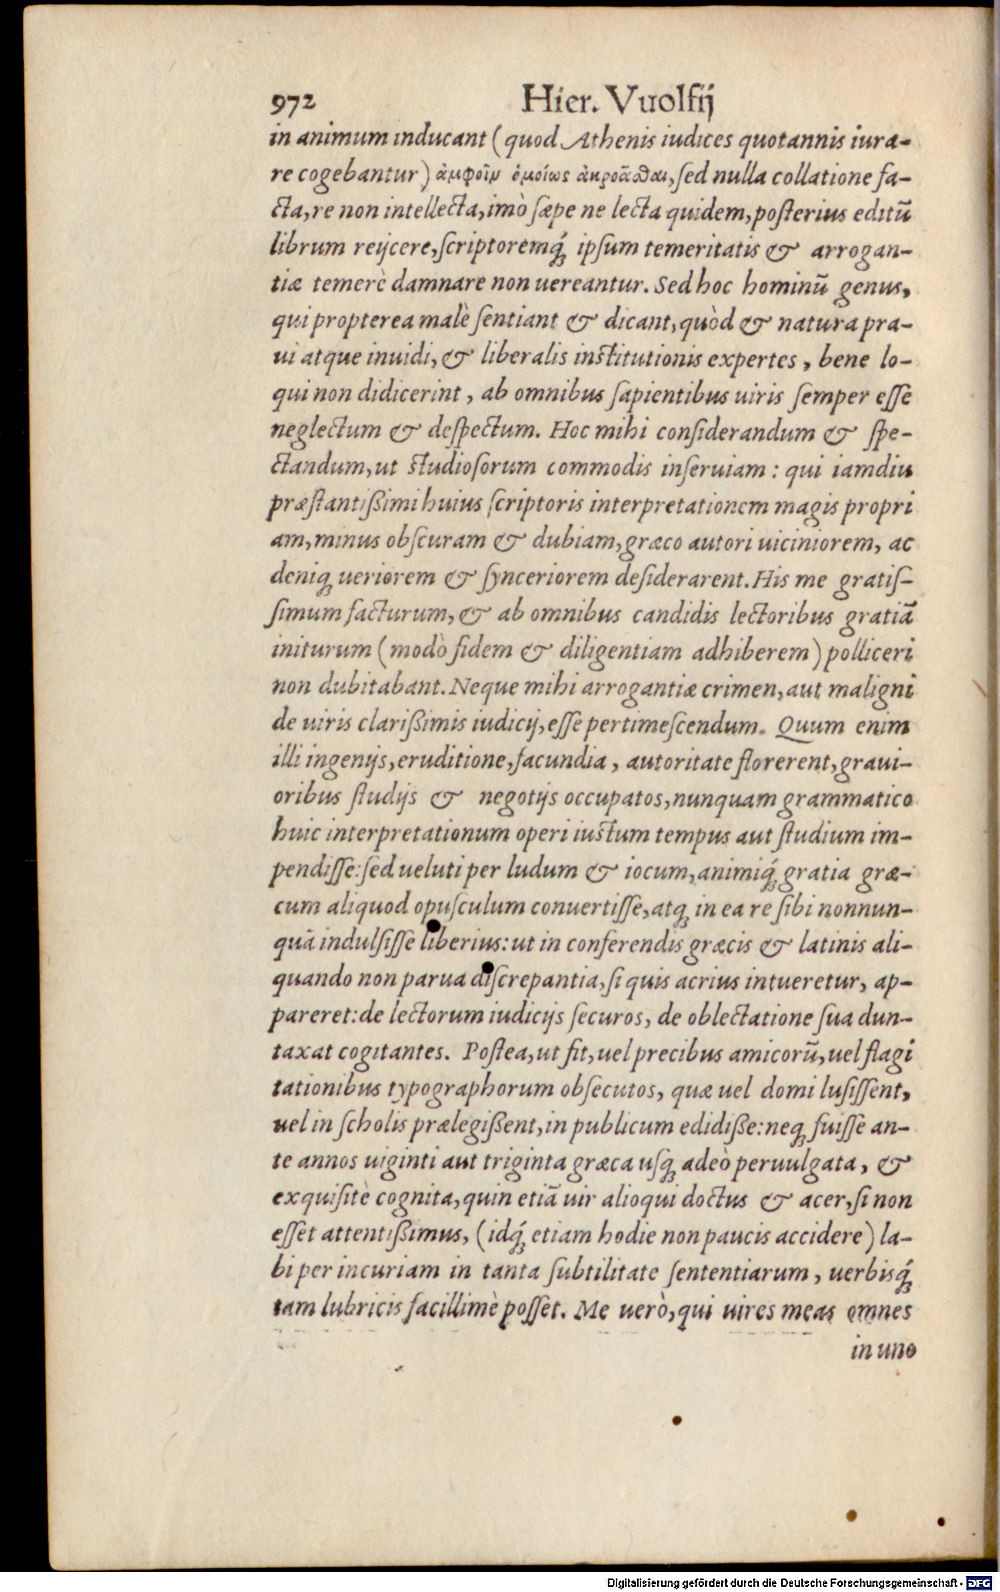 972 Hier. Vuolfij
in animum inducant (quod Athenis iudices quotannis iura-
re cogebantur) ἀμφοῖν ὁμοίως ἀκροᾶσθαι, sed nulla collatione fa-
cta, re non intellecta, imò sæpe ne lecta quidem, posterius editũ
librum reijcere, scriptoremq́; ipsum temeritatis & arrogan-
tiæ temerè damnare non uereantur. Sed hoc hominũ genus,
qui propterea malè sentiant & dicant, quòd & natura pra-
ui atque inuidi, & liberalis institutionis expertes, bene lo-
qui non didicerint, ab omnibus sapientibus uiris semper esse
neglectum & despectum. Hoc mihi considerandum & spe-
ctandum, ut studiosorum commodis inseruiam: qui iamdiu
præstantißimi huius scriptoris interpretationem magis propri
am, minus obscuram & dubiam, græco autori uiciniorem, ac
deniq; ueriorem & synceriorem desiderarent. His me gratis-
simum facturum, & ab omnibus candidis lectoribus gratiã
initurum (modò fidem & diligentiam adhiberem) polliceri
non dubitabant. Neque mihi arrogantiæ crimen, aut maligni
de uiris clarißimis iudicij, esse pertimescendum. Quum enim
illi ingenijs, eruditione, facundia, autoritate florerent, graui-
oribus studijs & negotijs occupatos, nunquam grammatico
huic interpretationum operi iustum tempus aut studium im-
pendisse: sed ueluti per ludum & iocum, animiq́; gratia græ-
cum aliquod opusculum conuertisse, atq; in ea re sibi nonnun-
quã indulsisse liberius: ut in conferendis græcis & latinis ali-
quando non parua discrepantia, si quis acrius intueretur, ap-
pareret: de lectorum iudicijs securos, de oblectatione sua dun-
taxat cogitantes. Postea, ut fit, uel precibus amicorũ, uel flagi
tationibus typographorum obsecutos, quæ uel domi lusissent,
uel in scholis prælegißent, in publicum edidiße: neq; fuisse an-
te annos uiginti aut triginta græca usq; adeò peruulgata, &
exquisitè cognita, quin etiã uir alioqui doctus & acer, si non
esset attentißimus, (idq́; etiam hodie non paucis accidere) la-
bi per incuriam in tanta subtilitate sententiarum, uerbisq́;
tam lubricis facillimè posset. Me uerò, qui uires meas omnes
in uno
Digitalisierung gefördert durch die Deutsche Forschungsgemeinschaft - DFG